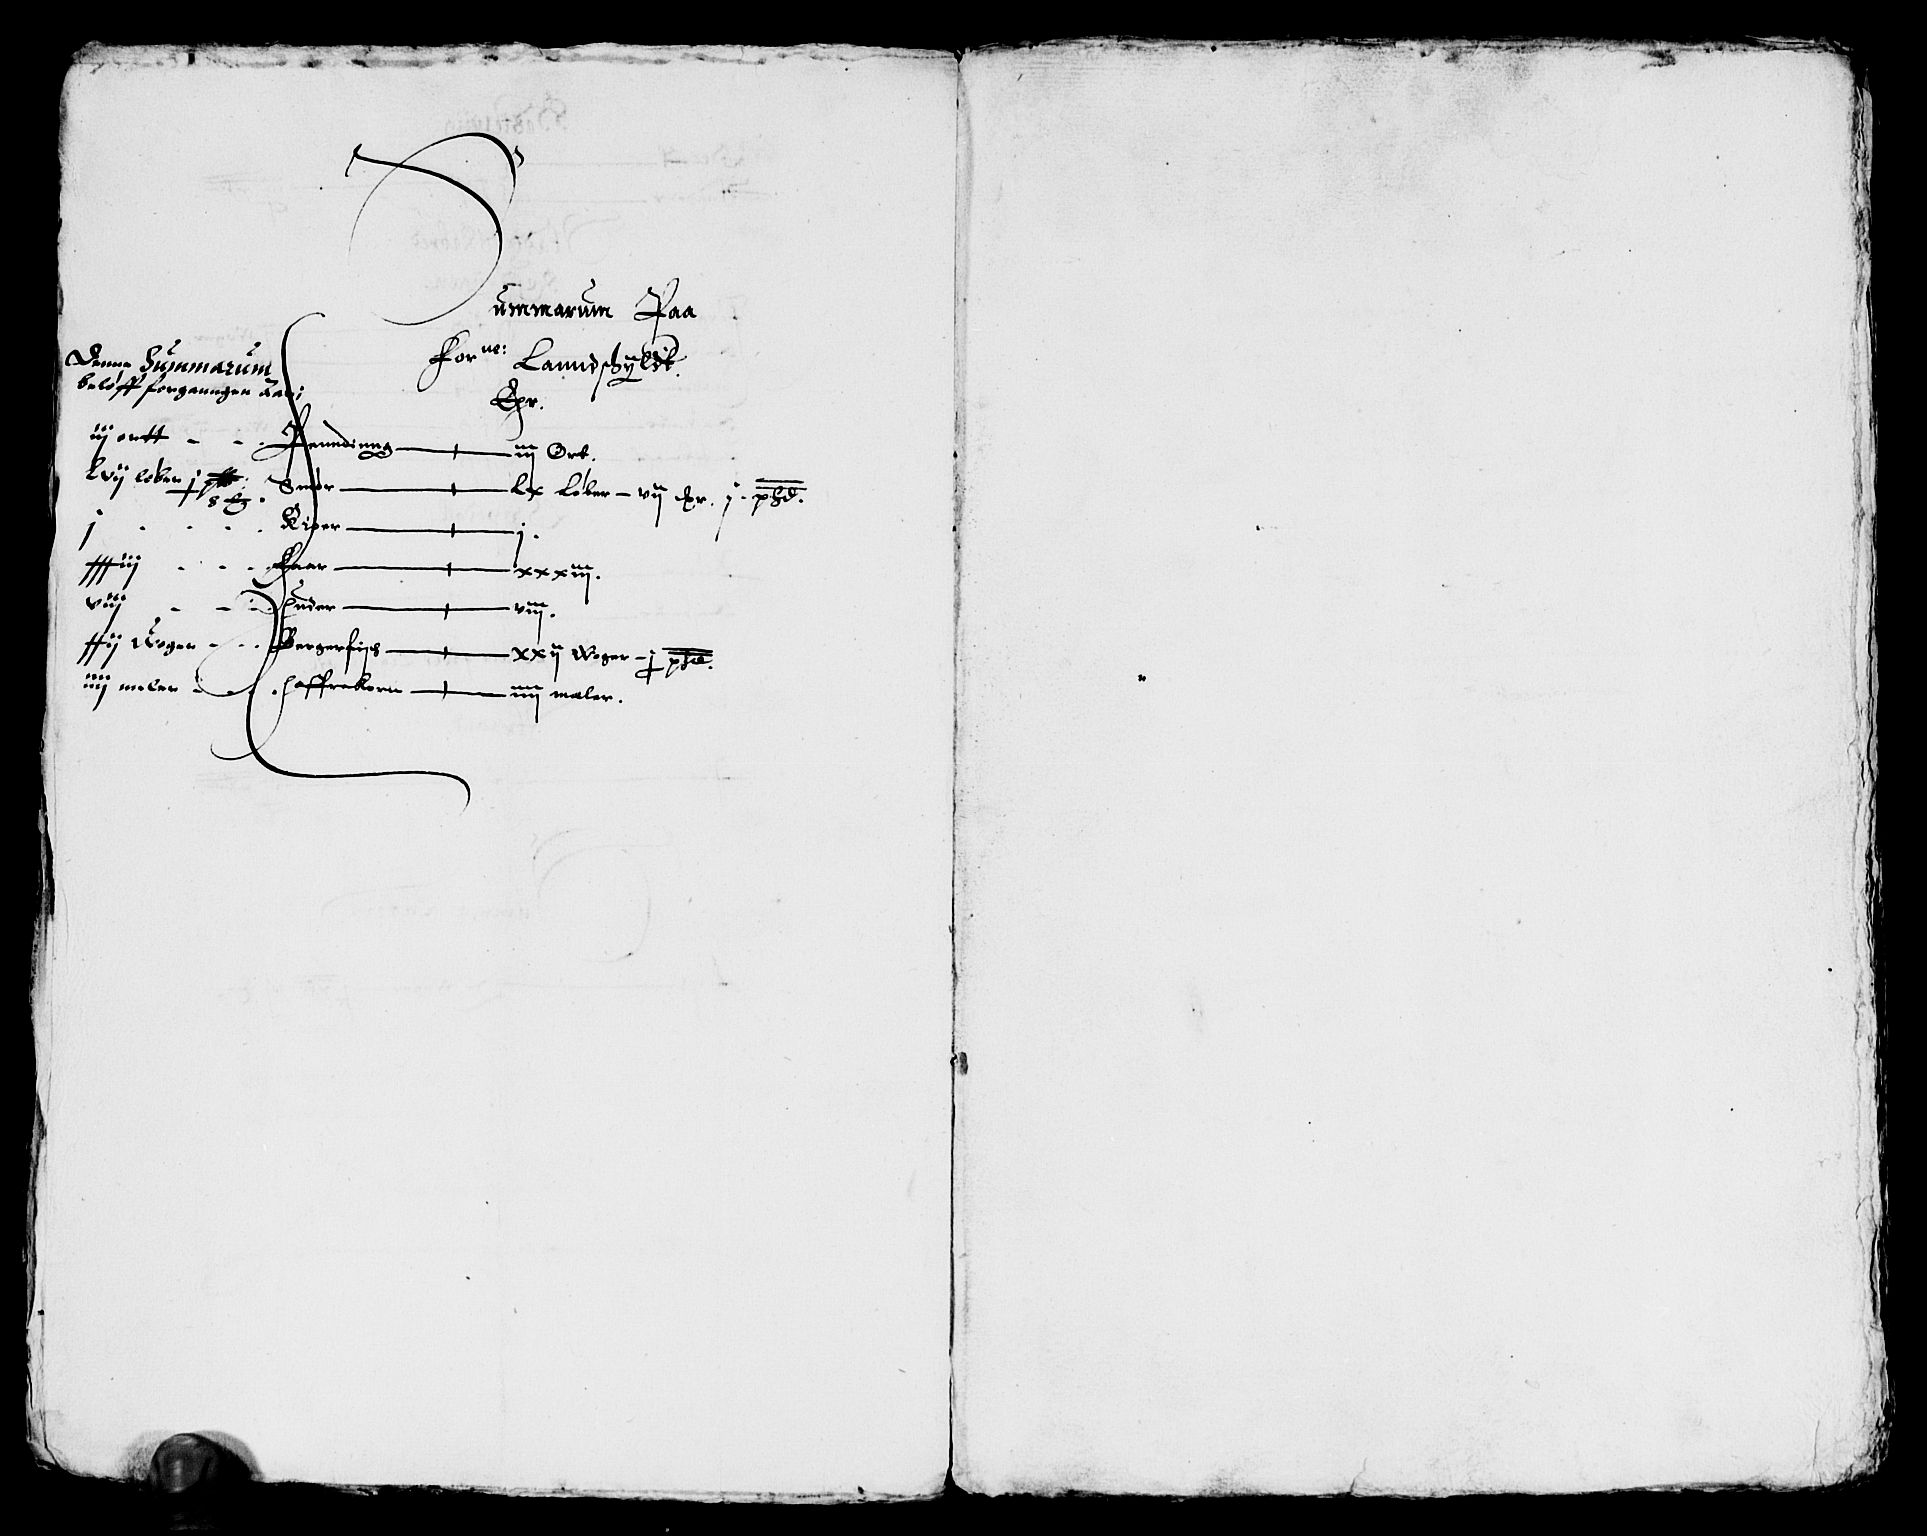 Summarum Paa
forne: Lanndschyldt.
Er.
Denne Summarum
beløff forganngen Aar;
iij ortt - - Penndinng — iiij Ort.
Lvij løber j phd: Smør — Lx Løber - vij Er. j. phd.
j - - - - Kiper — j.
xxxiij - - - Faar — xxxiiij.
viij - - - Huder — viij.
xxij Woger - - Bergerfisch — xxij Woger - j phd.
iiij maler - - - Haffrekorn — iiij maler.